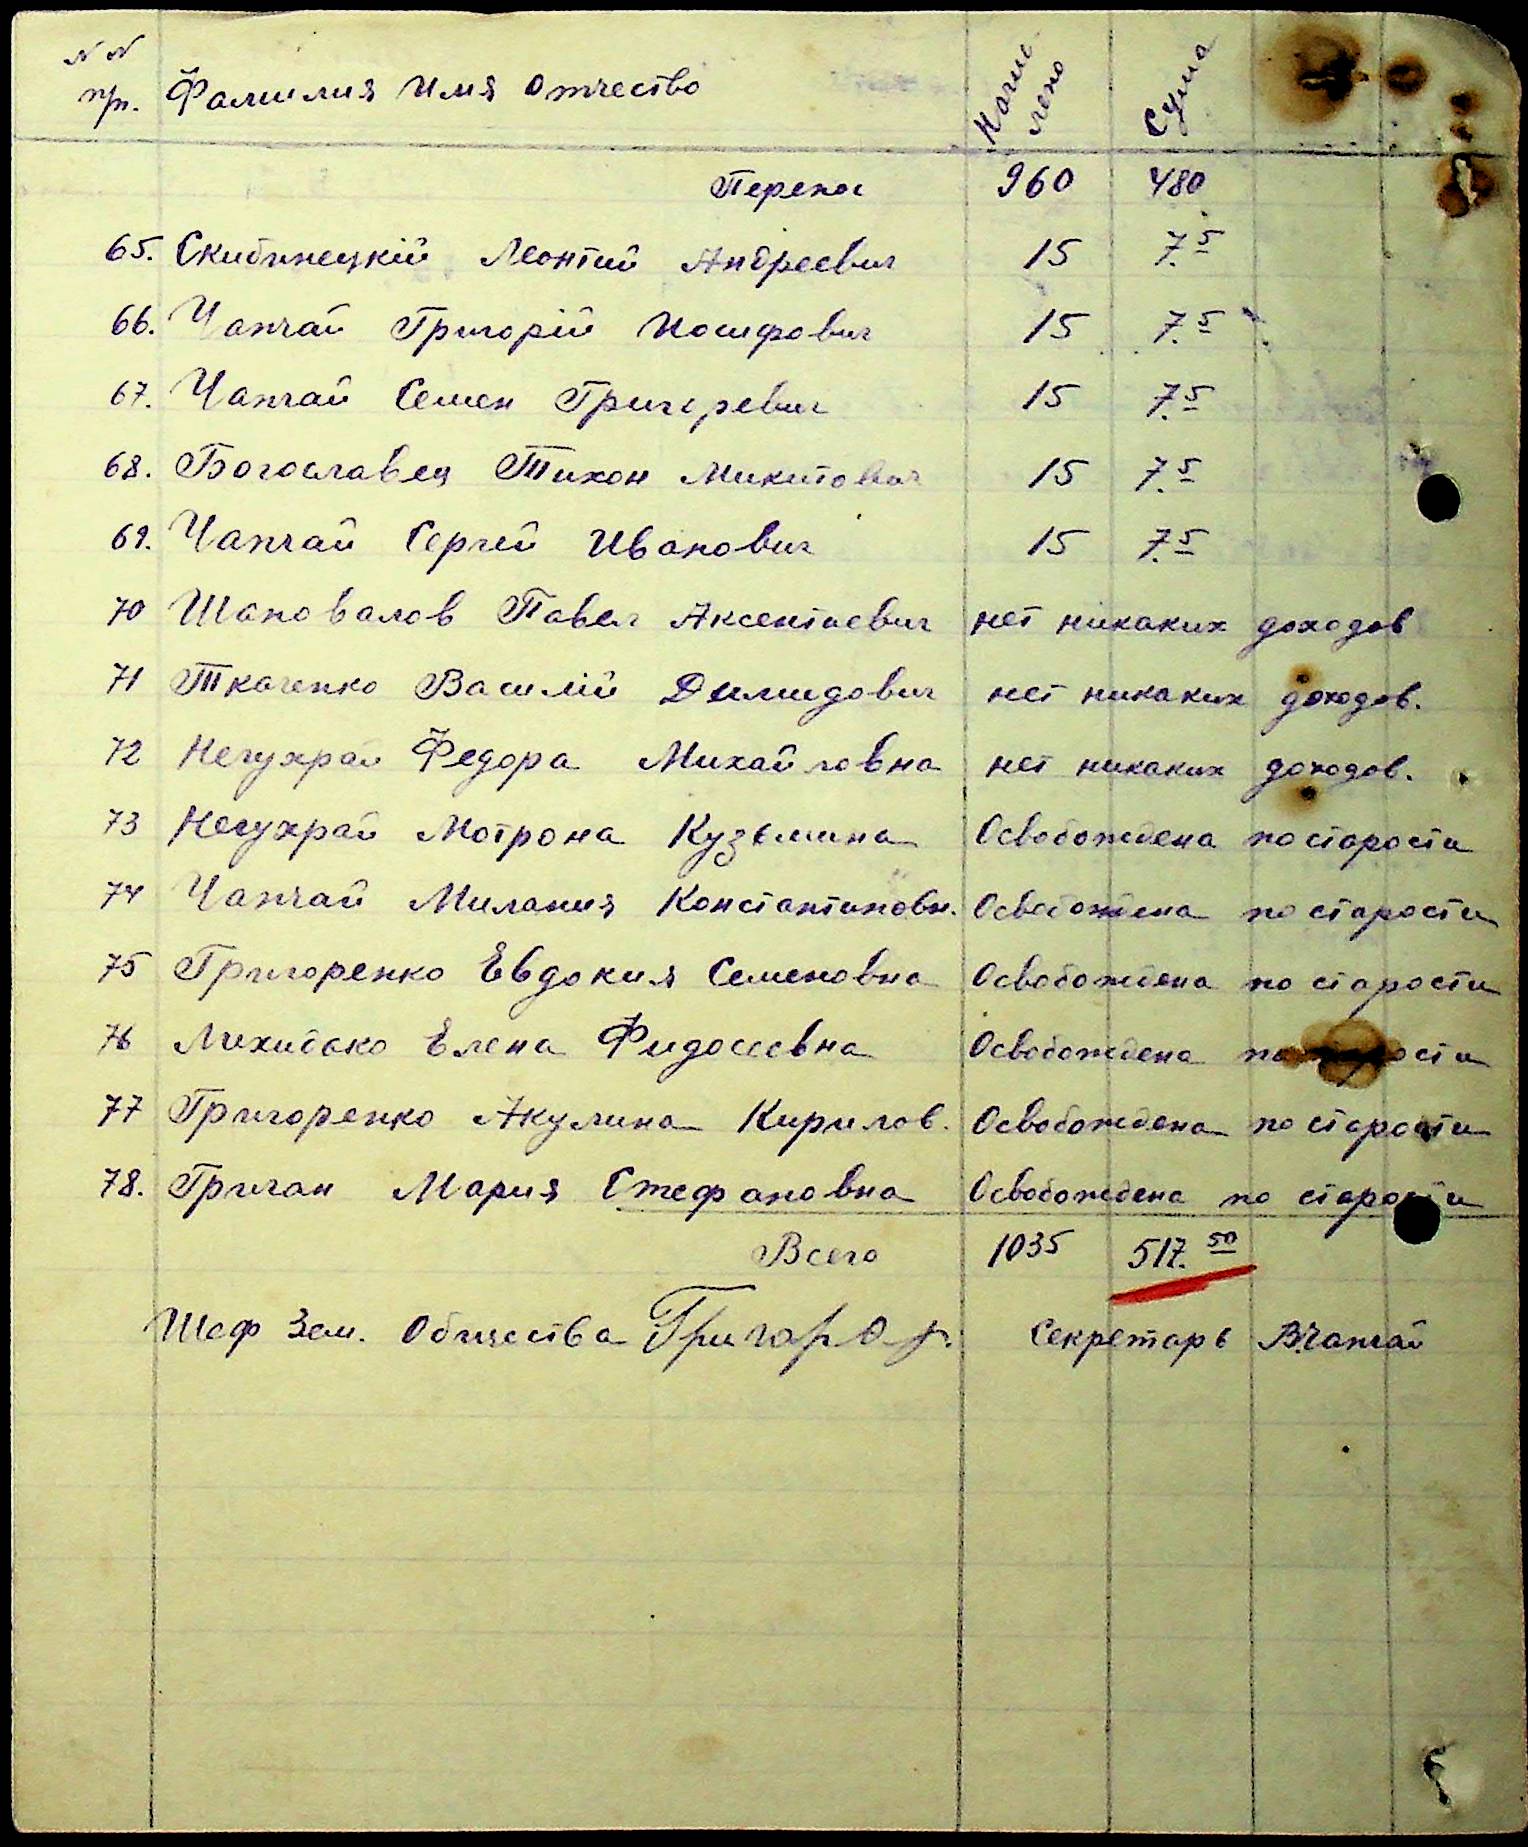 №№ пр. Фамилия Имя Отчество Начислено Сума
Перенос 960 480
65. Скибинецкій Леонтий Андреевич 15 7.5
66. Чапчай Григорій Иосифович 15 7.5
67. Чапчай Семен Григоревич 15 7.5
68. Богославец Тихон Микитович 15 7.5
69. Чапчай Сергей Иванович 15 7.5
70 Шаповалов Павел Аксентиевич нет никаких доходов
71 Ткаченко Василій Демидович нет никаких доходов.
72 Негухрай Федора Михайловна нет никаких доходов.
73 Негухрай Мотрона Кузьмина Освобождена по старости
74 Чапчай Милания Константиновн. Освобождена по старости
75 Григоренко Евдокия Семеновна Освобождена по старости
76 Лихидько Елена Фидосеевна Освобождена по старости
77 Григоренко Акулина Кирилов. Освобождена по старости
78. Григан Мария Стефановна Освобождена по старости
Всего 1035 517.50
Шеф Зем. Общества Секретарь В.Чапчай